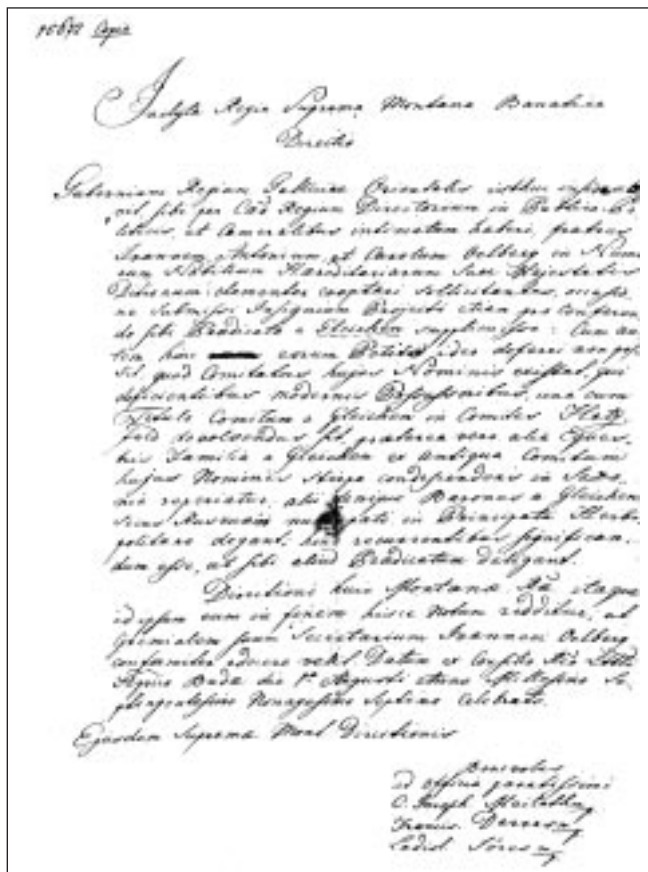 Copia
Inclyta Regia Suprema Montana Banatica
Directio
Gubernium Regium Galliciae Orientalis isthuc
sibi per Regium Directorium in Publico Po
liticis, et Cameralibus intimatum haberi, fratres
Joannem Antonium, et Carolum Oelberg in Nume
rum Nobilium Haereditariarum Suae Majestatis
Ditionum clementer cooptari sollicitantes, occasio
ne Submissi Insignium Projecti etiam pro conferen
do sibi Praedicato a Gleichen Cum au
tem huic eorum Petito ideo deferri non pos
sit, quod Comitatus hujus Nominis existat, qui
deficientibus modernis Possessoribus, una cum
Titulo Comitum a Gleichen in Comites Hatz
feld devolvendus sit, praeterea vero alia Eques
tris Familia a Gleichen ex antiqua Comitum
hujus Nominis Stirpe condependens in Saxo
nia reperiatur, alii denique Barones a Gleichen
seus in Principatu Herbi
politano degant, hinc recurrentibus significan
dum esse, ut sibi aliud Praedicatum deligant.
Directioni huic Montanae itaque
id ipsum eum in finem hisce notum redditur, ut
Gremialem suum Secretarium Joannem Oelberg
conformiter edocere velit. Datum ex Consilio
Budae die 1ª Augusti Anno Millesimo Se
ptingentesimo Nonagesimo Septimo Celebrato.
Ejusdem Supremae Mont Directionis
Benevoli
ad officia paratissimi
C. Joseph
Francis.
Ladisl.